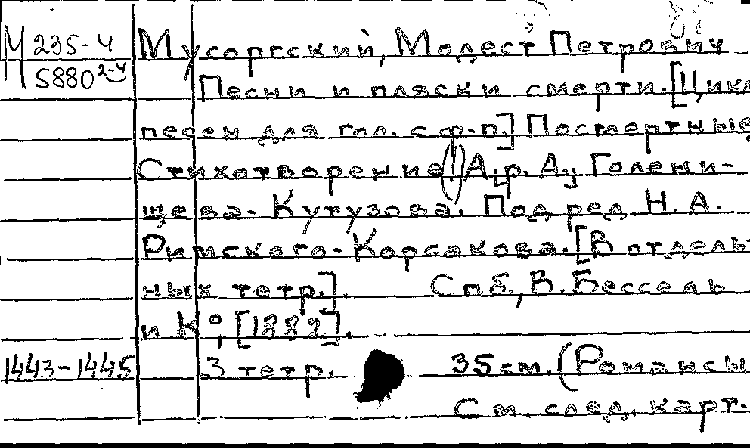 М 235-4 Мусоргский, Модест Петрович
П 5880 2-4 Песни и пляски смерти. [Цикл
песен для гол. с ф-п.] Посмертные
Стихотворение А. Голени-
щева-Кутузова. Под ред. Н. А.
Римскаго-Корсакова. [В отдель-
ных тетр.]. Спб., В. Бессель
и К°, [1882].
1443-1445 3 тетр. 35 см. (Романсы
См. след. карт.